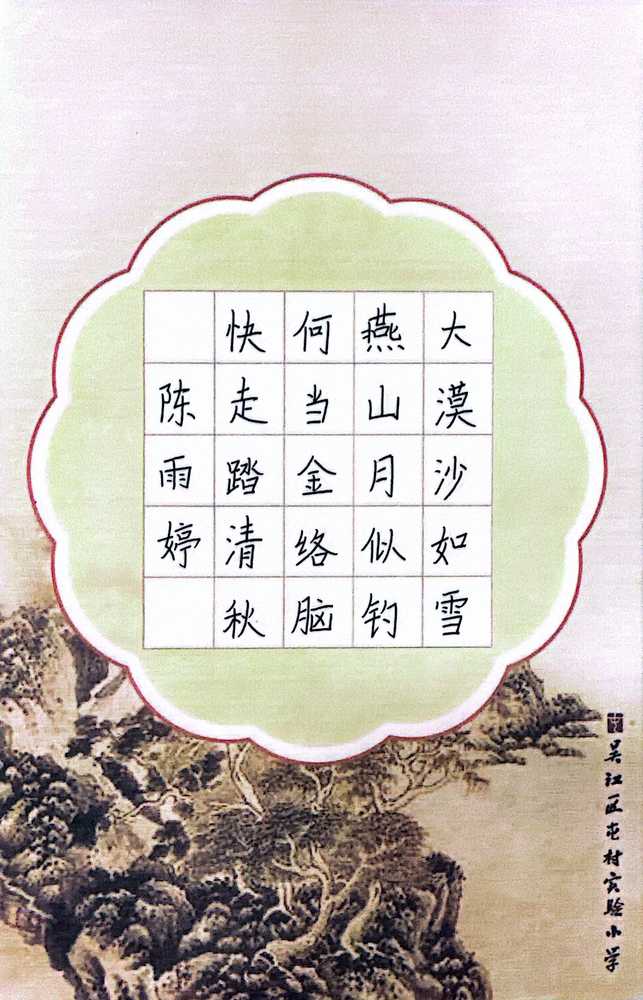 大漠沙如雪
燕山月似钓
何当金络脑
快走踏清秋
陈雨婷
吴江区屯村实验小学